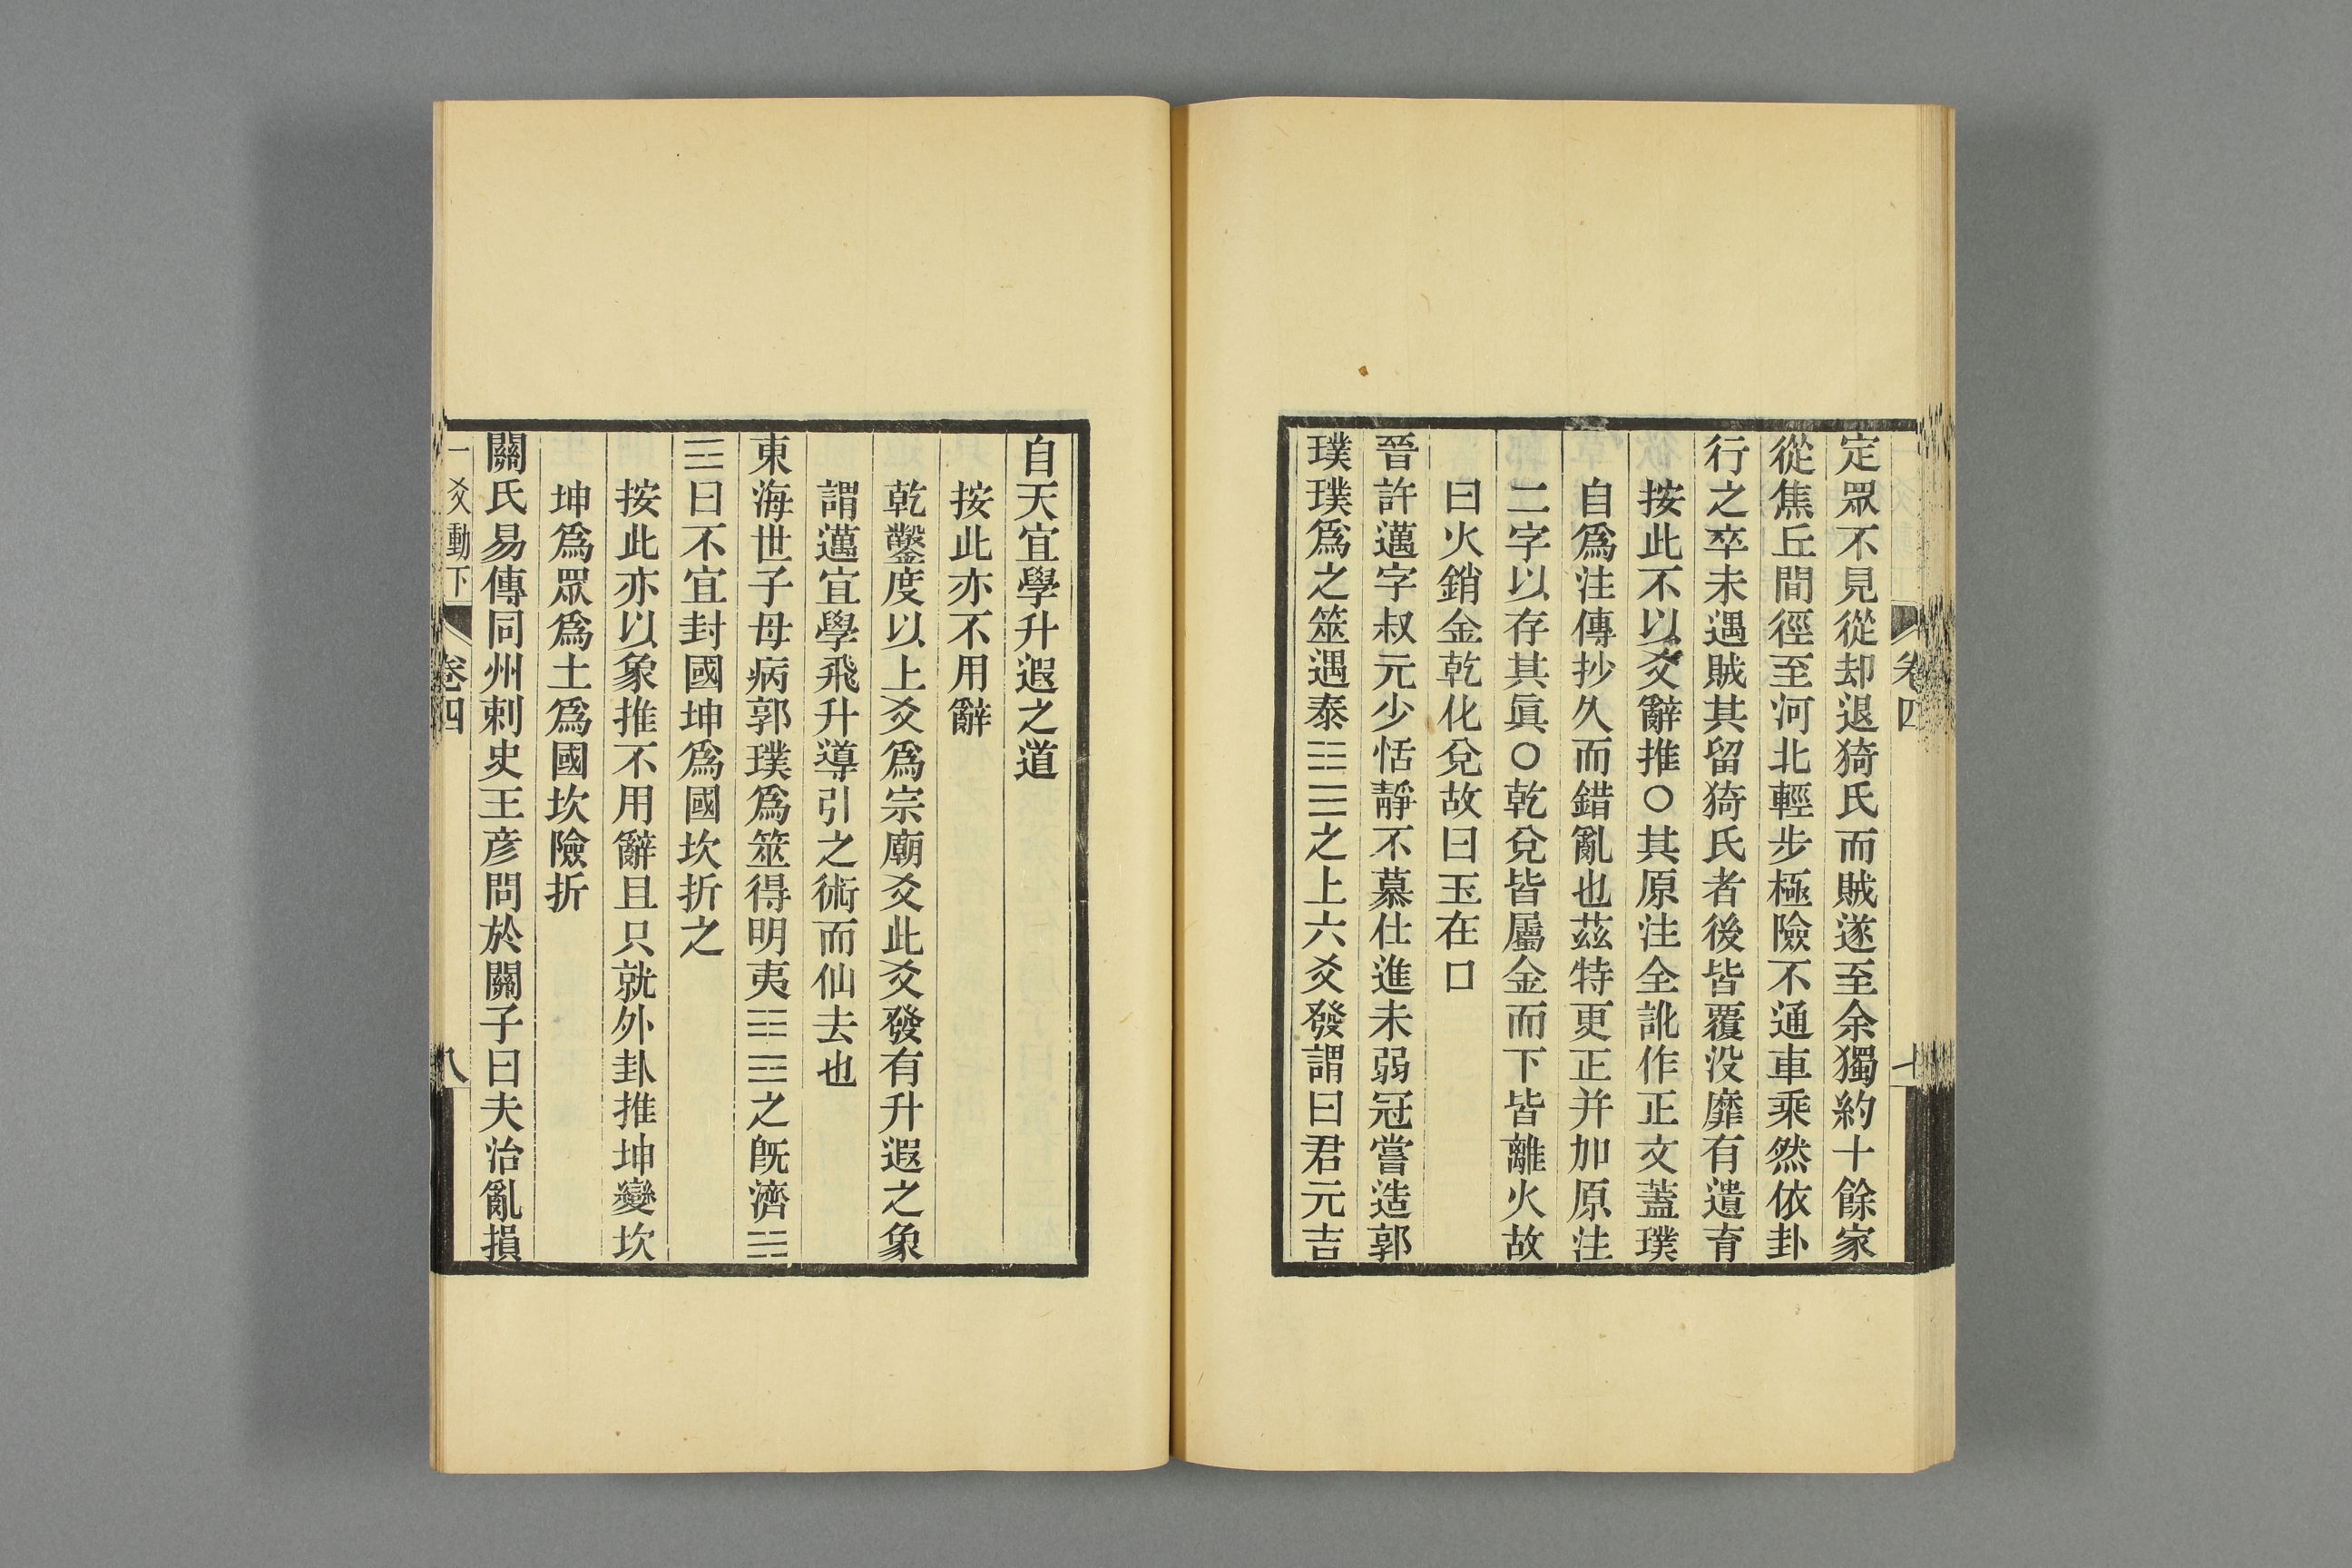 卷四
七
定眾不見從却退猗氏而賊遂至余獨約十餘家
從焦丘間徑至河北輕步極險不通車乘然依卦
行之卒未遇賊其留猗氏者後皆覆没靡有遺育
按此不以爻辭推○其原注全訛作正文蓋璞
自爲注傳抄久而錯亂也茲特更正并加原注
二字以存其眞○乾兌皆屬金而下皆離火故
曰火銷金乾化兌故曰玉在口
晉許邁字叔元少恬靜不慕仕進未弱冠嘗造郭
璞璞爲之筮遇泰☷☰之上六爻發謂曰君元吉
自天宜學升遐之道
按此亦不用辭
乾鑿度以上爻爲宗廟爻此爻發有升遐之象
謂邁宜學飛升導引之術而仙去也
東海世子母病郭璞爲筮得明夷☷☲之旣濟☵
☲曰不宜封國坤爲國坎折之
按此亦以象推不用辭且只就外卦推坤變坎
坤爲眾爲土爲國坎險折
關氏易傳同州刺史王彦問於關子曰夫治亂損
一爻動下
卷四
八